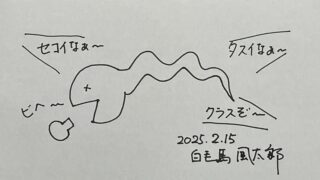 セコイなぁ〜
タスイなぁ〜
ビヘ〜
クラスぞ〜
2025.2.15
白毛馬 国太郎